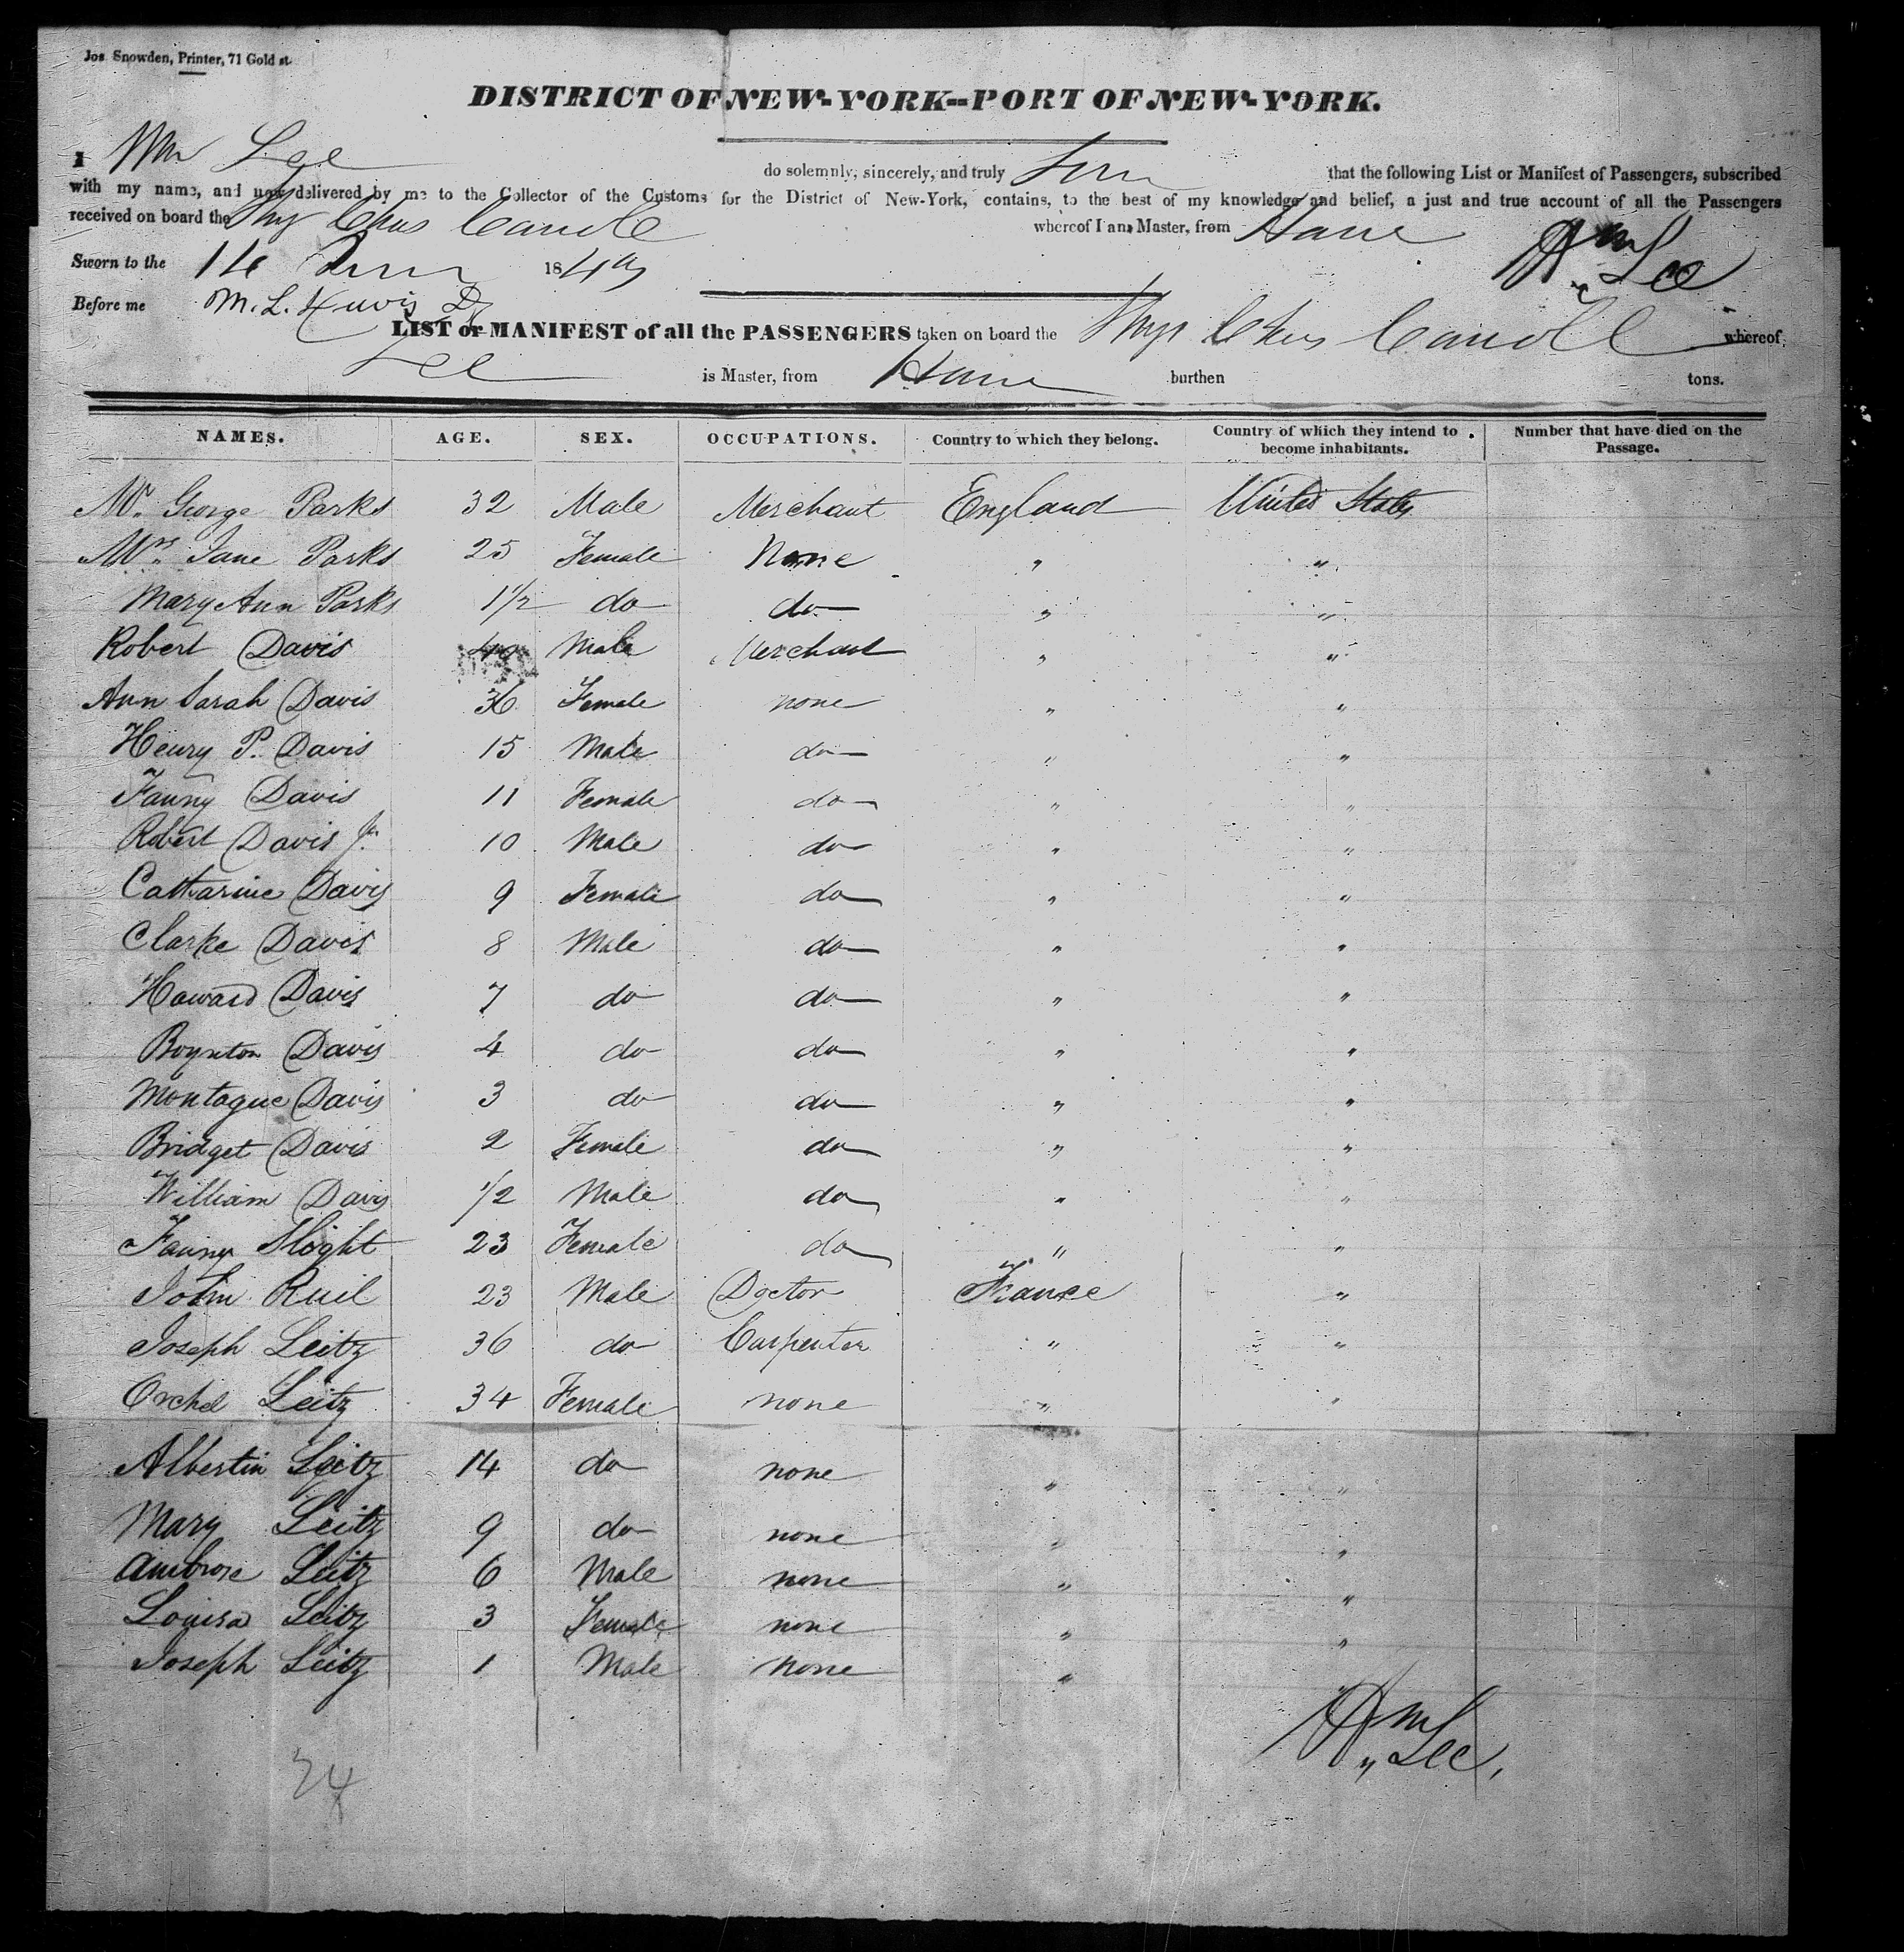 Jos Snowden, Printer, 71 Gold st.
DISTRICT OF NEW-YORK--PORT OF NEW-YORK.
I Wm Lee do solemnly, sincerely, and truly that the following List or Manifest of Passengers, subscribed
with my name, and now delivered by me to the Collector of the Customs for the District of New-York, contains, to the best of my knowledge and belief, a just and true account of all the Passengers
received on board the Ship Chas Carroll whereof I am Master, from Havre
Wm Lee
Sworn to the 18
Before me M. L. Davis
LIST or MANIFEST of all the PASSENGERS taken on board the Ship Chas Carroll whereof
Lee is Master, from Havre burthen tons.
NAMES. AGE. SEX. OCCUPATIONS. Country to which they belong. Country of which they intend to become inhabitants. Number that have died on the Passage.
Mr. George Parks 32 Male Merchant England United States
Mrs. Jane Parks 25 Female None " "
Mary Ann Parks 1 1/2 do do " "
Robert Davis 40 Male Merchant " "
Ann Sarah Davis 36 Female none " "
Henry P. Davis 15 Male do " "
Fanny Davis 11 Female do " "
Robert Davis Jr. 10 Male do " "
Catharine Davis 9 Female do " "
Clarke Davis 8 Male do " "
Howard Davis 7 do do " "
Boynton Davis 4 do do " "
Montague Davis 3 do do " "
Bridget Davis 2 Female do " "
William Davis 1/2 Male do " "
Fanny Slight 23 Female do " "
John Ruil 23 Male Doctor France "
Joseph Leitz 36 do Carpenter " "
Orchel Leitz 34 Female none " "
Albertin Leitz 14 do none " "
Mary Leitz 9 do none " "
Ambrose Leitz 6 Male none " "
Louisa Leitz 3 Female none " "
Joseph Leitz 1 Male none " "
Wm Lee,
24